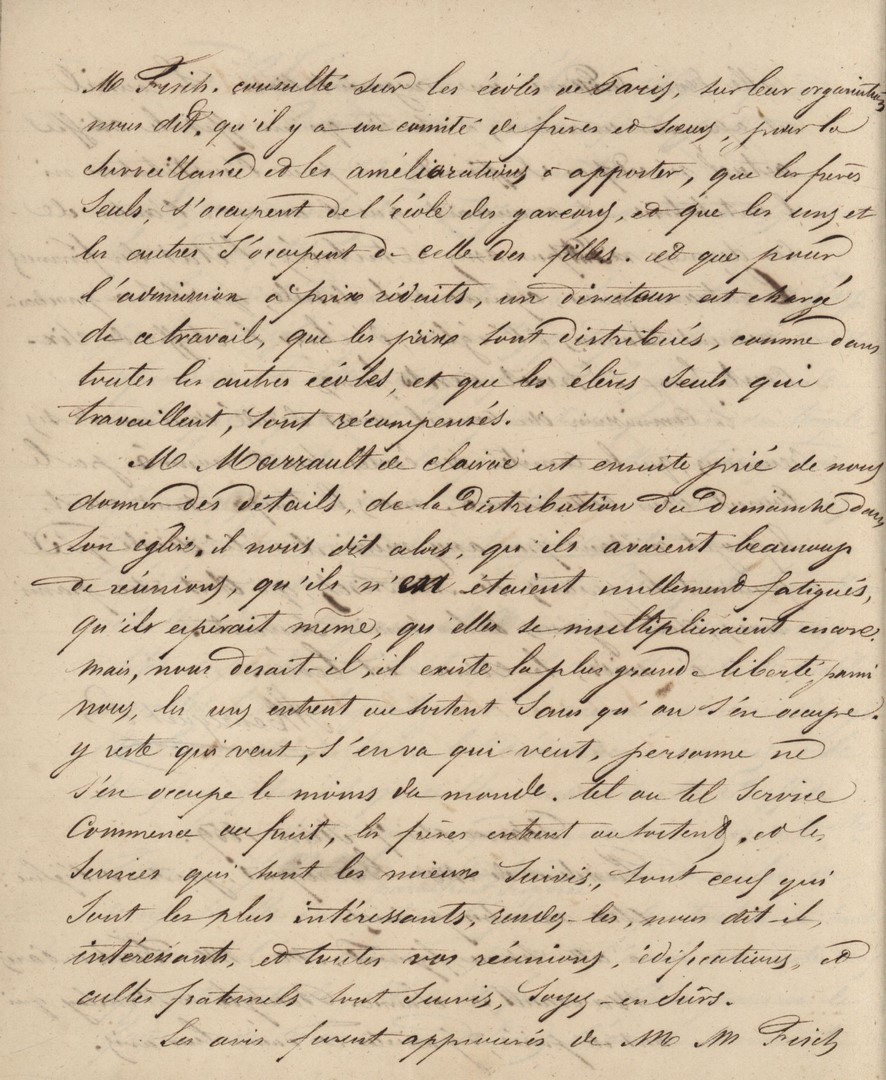 M Fisch. consulté sur les écoles de Paris, sur leur organisation
nous dit, qu'il y a un comité de frères et sœurs, pour la
surveillance et les améliorations à apporter, que les frères
seuls, s'occupent de l'école des garçons, et que les uns et
les autres s'occupent de celle des filles. et que pour
l'admission à prix réduits, un directeur est chargé
de ce travail, que les prix sont distribués, comme dans
toutes les autres écoles, et que les élèves seuls qui
travaillent, sont récompensés.
M Marrault de clairac est ensuite prié de nous
donner des détails, de la distribution du Dimanche dans
son eglise, il nous dit alors, qu'ils avaient beaucoup
de réunions, qu'ils n'en étaient nullement fatigués,
qu'ils espérait même, qu'elles se multiplieraient encore.
mais, nous disait-il, il existe la plus grande liberté parmi
nous, les uns entrent ou sortent sans qu'on s'en occupe.
y reste qui veut, s'en va qui veut, personne ne
s'en occupe le moins du monde. tel ou tel service
commence ou finit, les frères entrent ou sortent, et les
services qui sont les mieux suivis, sont ceux qui
sont les plus intéressants, rendez-les, nous dit-il,
intéressants, et toutes vos réunions, édifications, et
cultes fraternels sont suivis, soyez-en sûrs.
Les avis furent approuvés de M M Fisch